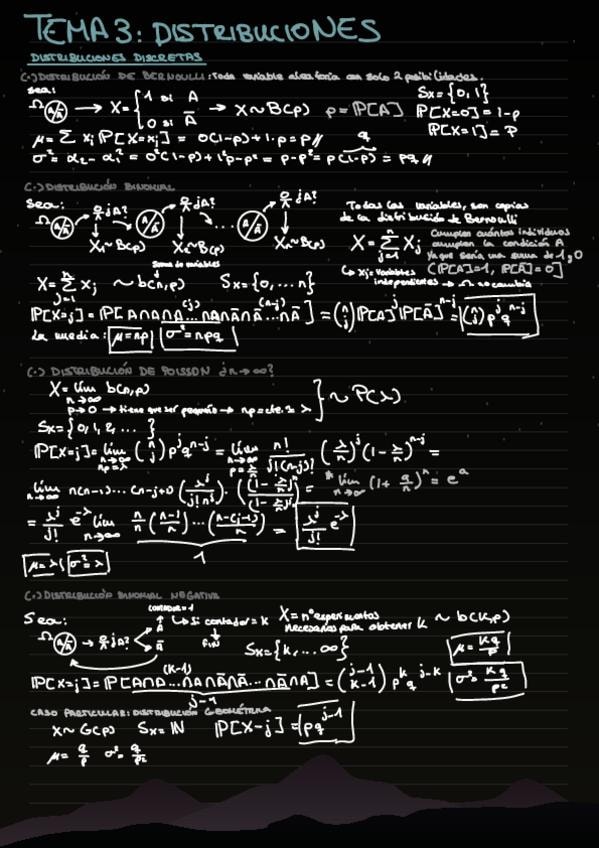 TEMA 3: DISTRIBUCIONES
DISTRIBUCIONES DISCRETAS
(·) DISTRIBUCIÓN DE BERNOULLI: Toda variable aleatoria con solo 2 posibilidades.
Sea: Ω (A/Ā) → X = { 1 si A, 0 si Ā → X ~ B(p) p = P[A] Sx = {0, 1}
P[X=0] = 1-p
P[X=1] = p
μ = Σ xj P[X=xj] = 0(1-p) + 1·p = p //
σ² = α₂ - α₁² = 0²(1-p) + 1²p - p² = p - p² = p(1-p) = pq //
q
(·) DISTRIBUCIÓN BINOMIAL
Sea: Ω (A/Ā) ¿A? (A/Ā) ¿A? ... (A/Ā) ¿A?
X₁~B(p) X₂~B(p) Xn~B(p)
Todas las variables, son copias
de la distribución de Bernoulli
X = Σ_{j=1}^{n} Xj
Cumplen cuántos individuos
cumplen la condición A
Ya que sería una suma de 1 y 0
(P[A]=1, P[Ā]=0]
↳ Xj = Variables
independientes → Ω no cambia
Suma de variables
X = Σ_{j=1}^{n} xj ~ b(n,p) Sx = {0, ... n}
P[X=j] = P[A∩A∩A...∩A∩Ā∩Ā...∩Ā] = (n j) P[A]^j P[Ā]^{n-j} = (n j) p^j q^{n-j}
(j) (n-j)
La media: μ = np σ² = npq
(·) DISTRIBUCIÓN DE POISSON ¿n→∞?
X = lím b(n,p)
n→∞
p→0 → tiene que ser pequeño → np = cte. = λ } ~ P(λ)
Sx = {0, 1, 2, ... }
P[X=j] = lím_{n→∞, np=λ} (n j) p^j q^{n-j} = lím_{n→∞, p=λ/n} n!/j!(n-j)! (λ/n)^j (1-λ/n)^{n-j} =
lím_{n→∞} n(n-1)... (n-j+1) (λ^j/j! n^j) · ((1-λ/n)^n/(1-λ/n)^j) = * lím_{n→∞} (1+a/n)^n = e^a
= λ^j/j! e^{-λ} lím_{n→∞} n/n (n-1/n) ... (n-(j-1)/n) = λ^j/j! e^{-λ}
1
μ = λ σ² = λ
(·) DISTRIBUCIÓN BINOMIAL NEGATIVA
Sea: Ω (A/Ā) → ¿A? A Ā
contador+1
↳ Si contador = k
FIN
X = nº experimentos
necesarios para obtener k ~ b(k,p)
Sx = {k, ... ∞}
μ = kq/p
P[X=j] = P[A∩A∩...∩A∩Ā∩Ā...∩Ā∩A] = (j-1 k-1) p^k q^{j-k} σ² = kq/p²
(k-1)
j-1
CASO PARTICULAR: DISTRIBUCIÓN GEOMÉTRICA
X ~ G(p) Sx = ℕ P[X=j] = pq^{j-1}
μ = q/p σ² = q/p²